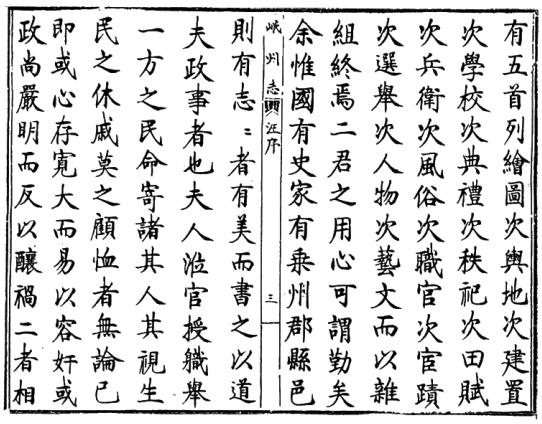 有五首列繪圖次輿地次建置
次學校次典禮次秩祀次田賦
次兵衛次風俗次職官次宦蹟
次選舉次人物次藝文而以雜
組終焉二君之用心可謂勤矣
余惟國有史家有乘州郡縣邑
岷州志 汪序 三
則有志〻者有美而書之以道
夫政事者也夫人涖官授職舉
一方之民命寄諸其人其視生
民之休戚莫之顧恤者無論已
即或心存寬大而易以容奸或
政尚嚴明而反以釀禍二者相